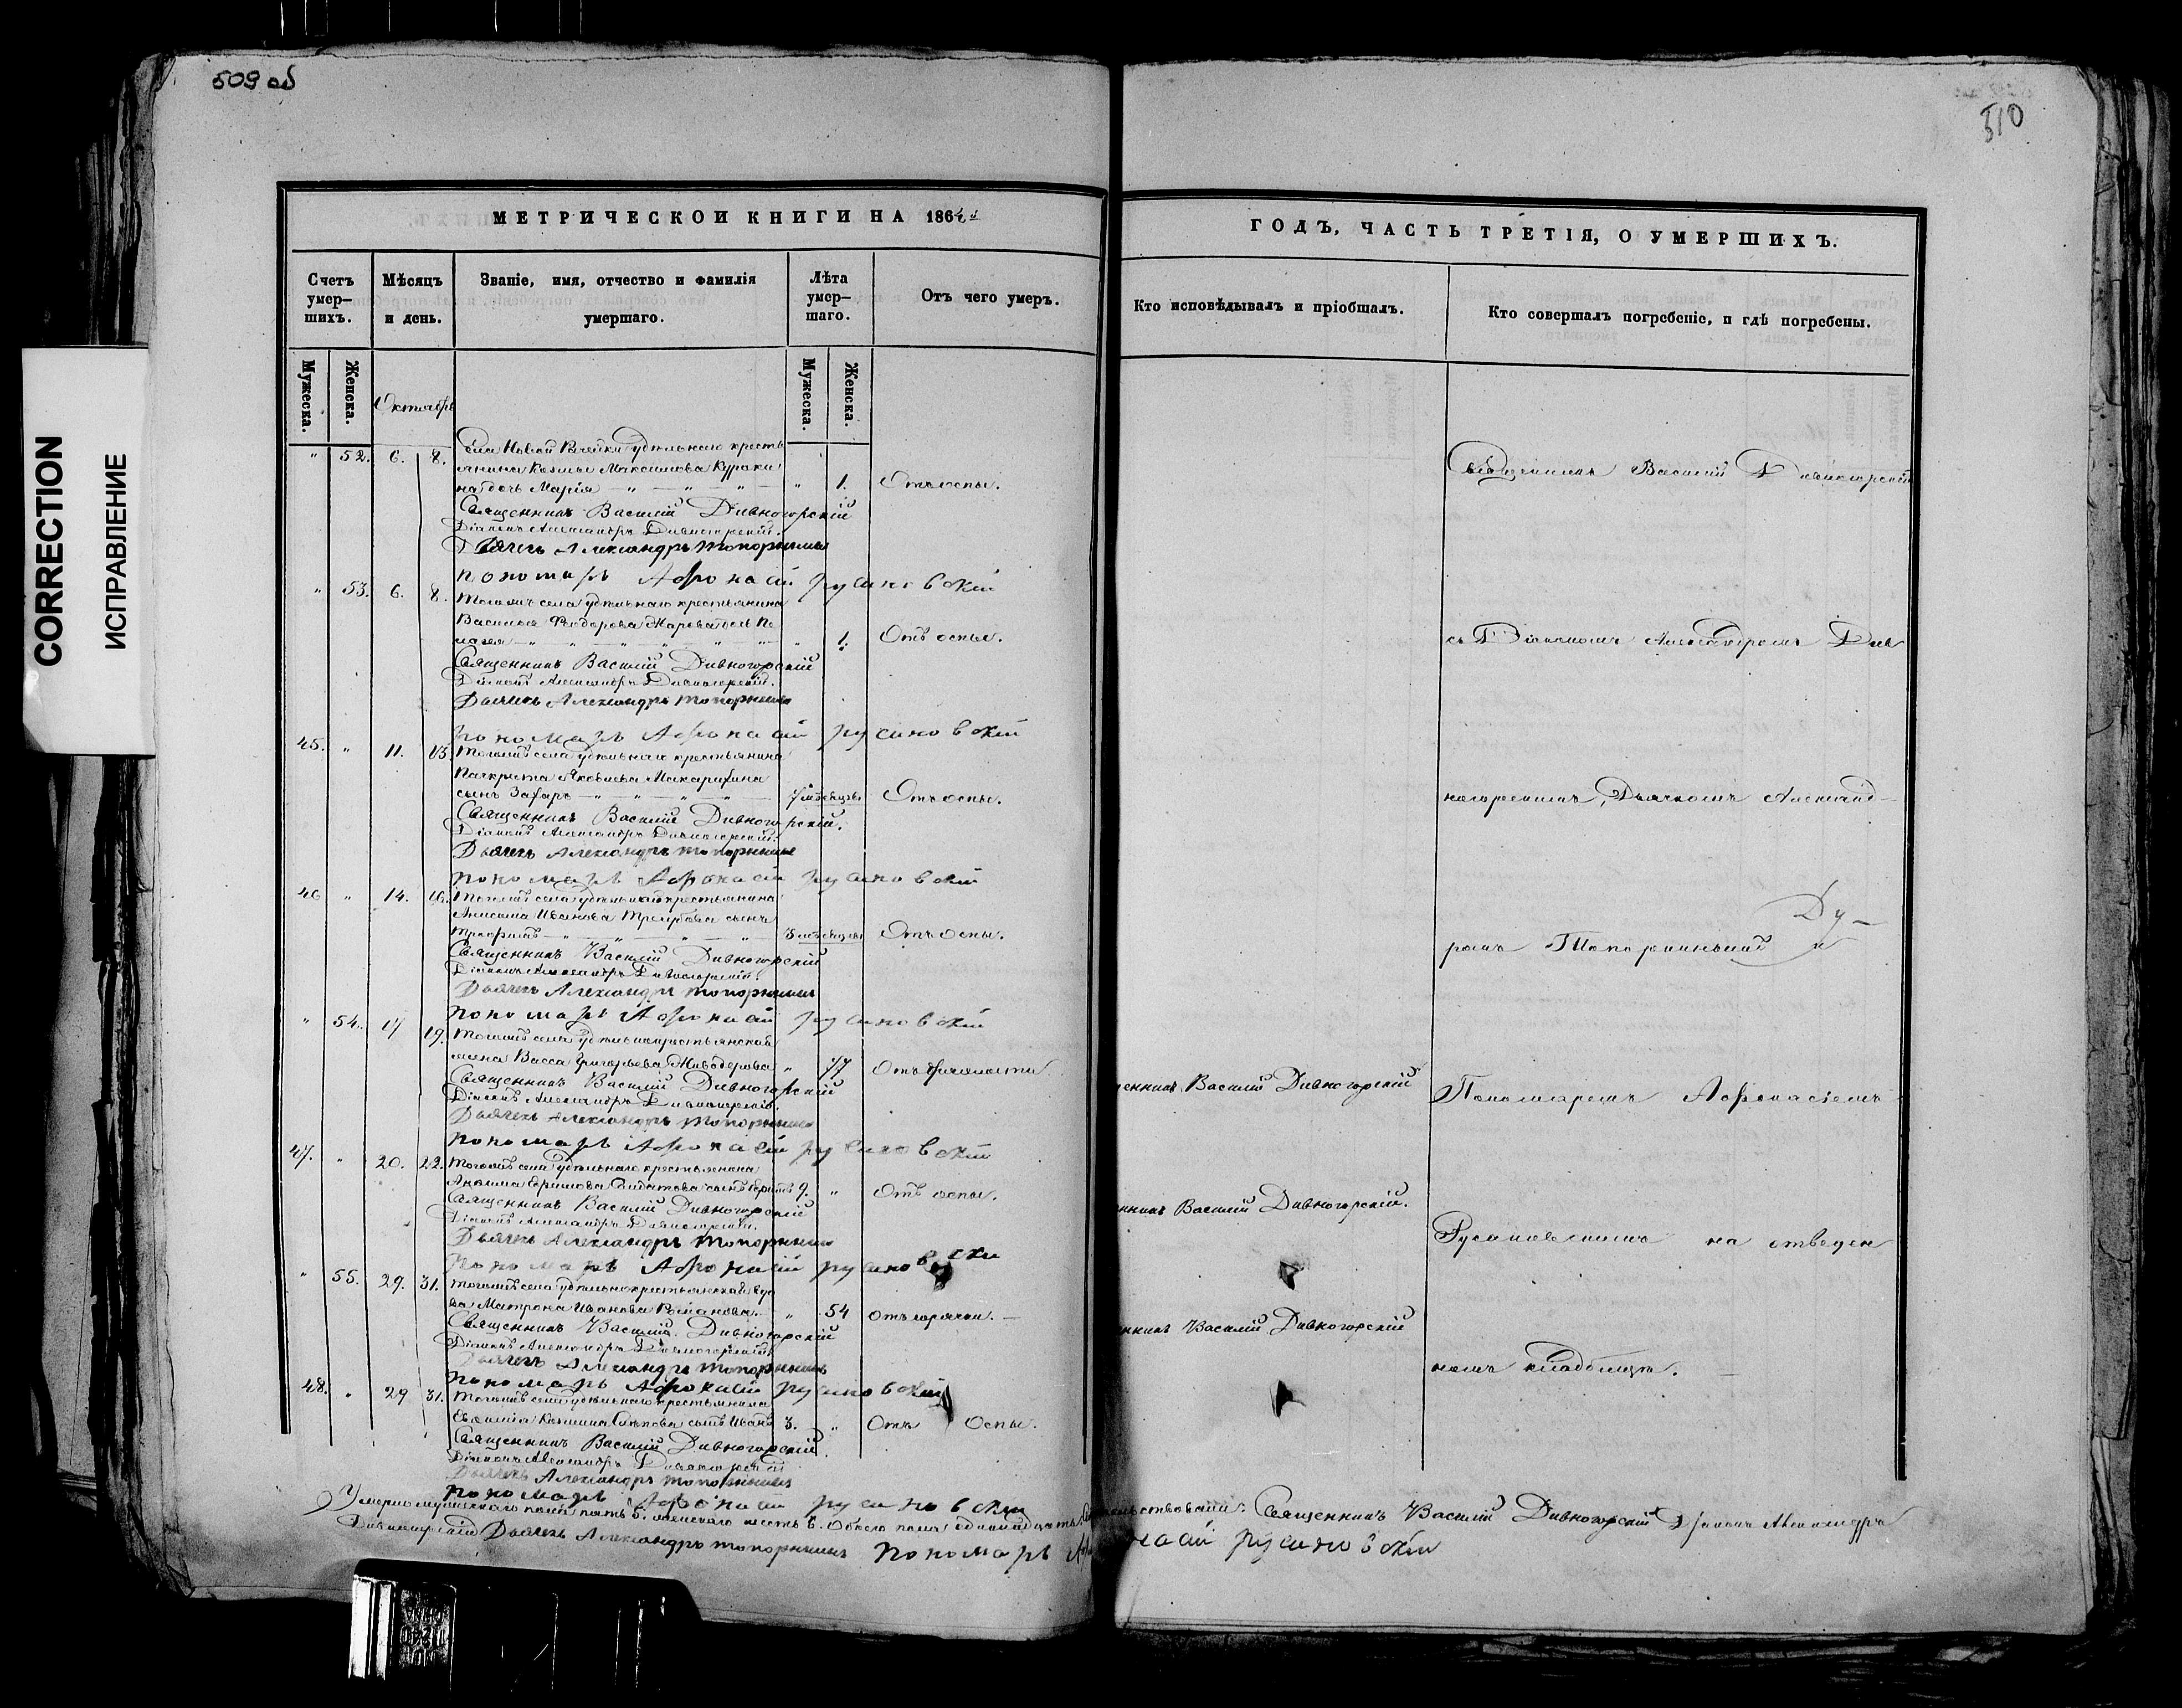 509 об
510
CORRECTION
ИСПРАВЛЕНИЕ
МЕТРИЧЕСКОЙ КНИГИ НА 186
ГОДЪ, ЧАСТЬ ТРЕТІЯ, О УМЕРШИХЪ.
Счетъ умер-
шихъ.
Мѣсяцъ
и день.
Званіе, имя, отчество и фамилія
умершаго.
Лѣта
умер-
шаго.
Отъ чего умеръ.
Кто исповѣдывалъ и пріобщалъ.
Кто совершалъ погребеніе, и гдѣ погребены.
Мужеска.
Женска.
Октябрь
Мужеска.
Женска.
" 52. 6. 8. Села Новой удѣльнаго кресть
янина Козмы Максимова Кураки
на дочь Марія " 1. Отъ оспы.
Священникъ Василій Дивногорскій
Діаконъ Александръ Дивногорскій.
Дьячекъ Александръ Топорнинъ
пономарь Афонасій русановскій
" 53. 6. 8. Тогожъ села удѣльнаго крестьянина
Василья Федорова дочь Пе
лагея " 1. Отъ оспы.
Священникъ Василій Дивногорскій
Діаконъ Александръ Дивногорскій.
Дьячекъ Александръ Топорнинъ
пономарь Афонасій русановскій
45. " 11. 13. Тогожъ села удѣльнаго крестьянина
Панкрата Яковлева Макарихина
сынъ Захаръ 7 мѣсяцовъ Отъ оспы.
Священникъ Василій Дивногорскій.
Діаконъ Александръ Дивногорскій.
Дьячекъ Александръ Топорнинъ
пономарь Афонасій русановскій
46 " 14. 16. Тогожъ села удѣльнаго крестьянина
Анисима Иванова сынъ
Трофимъ мѣсяцовъ Отъ оспы.
Священникъ Василій Дивногорскій
Діаконъ Александръ Дивногорскій.
Дьячекъ Александръ Топорнинъ
пономарь Афонасій русановскій
" 54. 17 19. Тогожъ села удѣльнокрестьянская
жена Васса Григорьева Живодерова " 77 Отъ
Священникъ Василій Дивногорскій
Діаконъ Александръ Дивногорскій.
Дьячекъ Александръ Топорнинъ
пономарь Афонасій русановскій
47. " 20. 22. Тогожъ села удѣльнаго крестьянина
Акима Ефимова сынъ 9. " Отъ оспы.
Священникъ Василій Дивногорскій
Діаконъ Александръ Дивногорскій.
Дьячекъ Александръ Топорнинъ
пономарь Афонасій русановски
" 55. 29. 31. Тогожъ села удѣльнокрестьянская вдо
ва Матрона Иванова Романова " 54 Отъ горячки.
Священникъ Василій Дивногорскій
Діаконъ Александръ Дивногорскій
Дьячекъ Александръ Топорнинъ
пономарь Афонасій русановскій
48. " 29 31. Тогожъ села удѣльнаго крестьянина
Евфимія Козмина сынъ Иванъ 3. " Отъ Оспы.
Священникъ Василій Дивногорскій.
Діаконъ Александръ Дивногорскій
Дьячекъ Александръ Топорнинъ
пономарь Афонасій русановскій
Священникъ Василій Дивногорскій
съ Діакономъ Александромъ Див
ногорскимъ, Дьячкомъ Александ-
ромъ Топорнинымъ и
енникъ Василій Дивногорскій
Пономаремъ Афонасіемъ
нникъ Василій Дивногорскій.
Русановскимъ на отведен
нникъ Василій Дивногорскій
номъ кладбищѣ.
Умерло мужескаго пола пять 5. женскаго шесть 6. Обоего пола одиннадцать Священникъ Василій Дивногорскій Діаконъ Александръ
Дивногорскій Дьячекъ Александръ Топорнинъ пономарь Афонасій русановскій